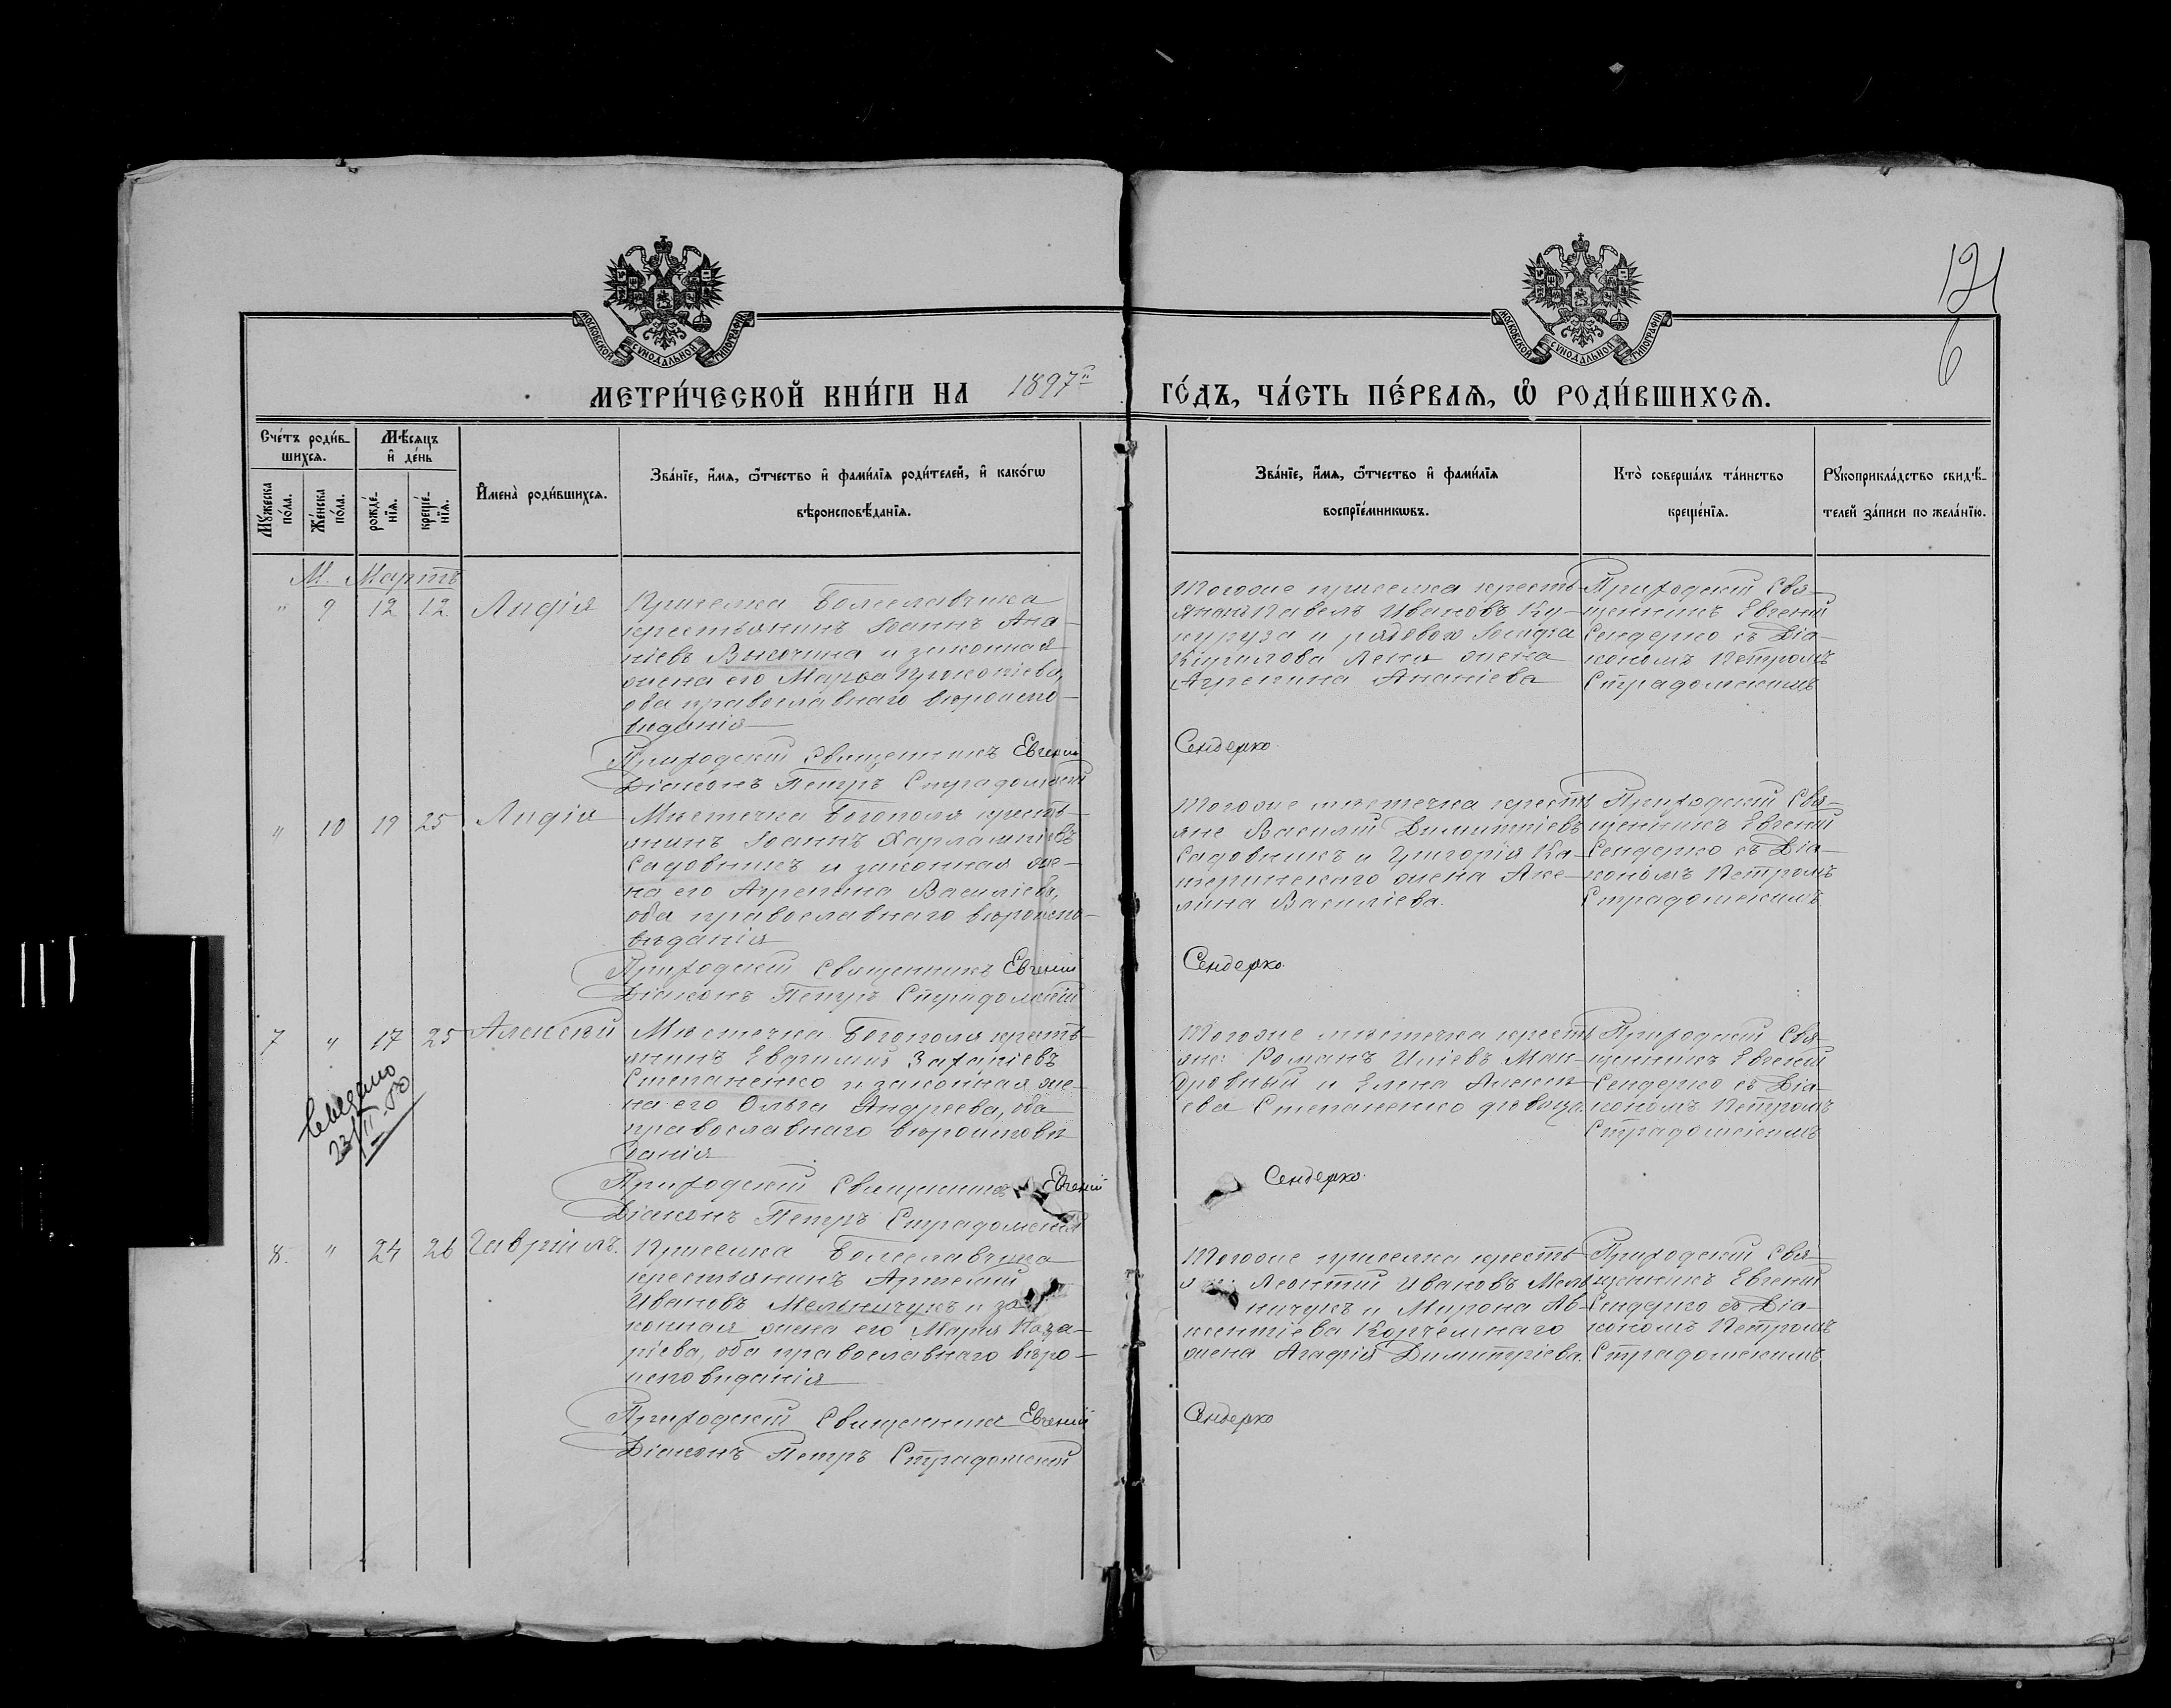 121
6
МОСКОВСКОЙ СѴНОДАЛЬНОЙ ТИПОГРАФІИ
МОСКОВСКОЙ СѴНОДАЛЬНОЙ ТИПОГРАФІИ
МЕТРИ́ЧЕСКОЙ КНИ́ГИ НА 1897 ГО́ДЪ, ЧА́СТЬ ПЕ́РВАЯ, Ѡ РОДИ́ВШИХСЯ.
Сче́тъ роди́в-
шихся.
Мѣ́сяцъ
и҆ де́нь
Му́жеска по́ла.
Же́нска по́ла.
рожде́-
нїя.
креще́-
нїя.
И҆мена̀ роди́вшихся.
Зва́нїе, и҆́мя, ѻ҆́тчество и҆ фами́лїя роди́телей, и҆ како́гѡ
вѣроисповѣ́данїя.
Зва́нїе, и҆́мя, ѻ҆́тчество и҆ фами́лїя
воспрїе́мникѡвъ.
Кто̀ соверша́лъ та́инство
креще́нїя.
Рꙋкоприкла́дство свидѣ́-
телей за́писи по жела́нїю.
М. Мартъ
" 9 12 12 Лидія
Приселка Болеславчика
крестьянинъ Іоаннъ Ана-
ніевъ Высочина и законная
жена его Марѳа Прокопіева,
оба православнаго вѣроиспо-
вѣданія
Приходскій Священникъ Евгеній
Діаконъ Петръ Страдомскій
Тогоже приселка кресть-
Павелъ Ивановъ Ку-
куруза и рядового Іосифа
Кирилова жена
Агрепина Ананіева
Сендерко
Приходскій Свя-
щенникъ Евгеній
Сендерко съ Діа-
кономъ Петромъ
Страдомскимъ
" 10 19 25 Лидія
Мѣстечка Богополя кресть-
янинъ Іоаннъ Харлампіевъ
Садовникъ и законная же-
на его Агрепина Василіева,
оба православнаго вѣроиспо-
вѣданія
Приходскій Священникъ Евгеній
Діаконъ Петръ Страдомскій
Тогоже мѣстечка кресть-
яне Василій Димитріевъ
Садовникъ и Григорія Ка-
теринскаго жена Аке-
лина Василіева.
Сендерко
Приходскій Свя-
щенникъ Евгеній
Сендерко съ Діа-
кономъ Петромъ
Страдомскимъ
7 " 17 25 Алексѣй
Мѣстечка Богополя кресть-
янинъ Евдокимъ Захаріевъ
Степаненко и законная же-
на его Ольга Андреева, оба
православнаго вѣроисповѣ
данія
Приходскій Священникъ Евгеній
Діаконъ Петръ Страдомскій
Тогоже мѣстечка кресть
яне: Романъ Иліевъ Ман-
дровный и Елена Алексѣ-
ева Степаненко дѣвица.
Сендерко
Приходскій Свя-
щенникъ Евгеній
Сендерко съ Діа-
кономъ Петромъ
Страдомскимъ
23/II
8. " 24 26 Гавріилъ.
Приселка Болеславчика
крестьянинъ Артемій
Ивановъ Мельничукъ и за
конная жена его Марія Наза-
ріева, оба православнаго вѣро-
исповѣданія
Приходскій Священникъ Евгеній
Діаконъ Петръ Страдомскій
Тогоже приселка кресть-
Леонтій Ивановъ Мель-
ничукъ и Мирона Ав-
ксентіева Корчемнаго
жена Агафія Димитріева.
Сендерко
Приходскій Свя-
щенникъ Евгеній
Сендерко съ Діа-
кономъ Петромъ
Страдомскимъ